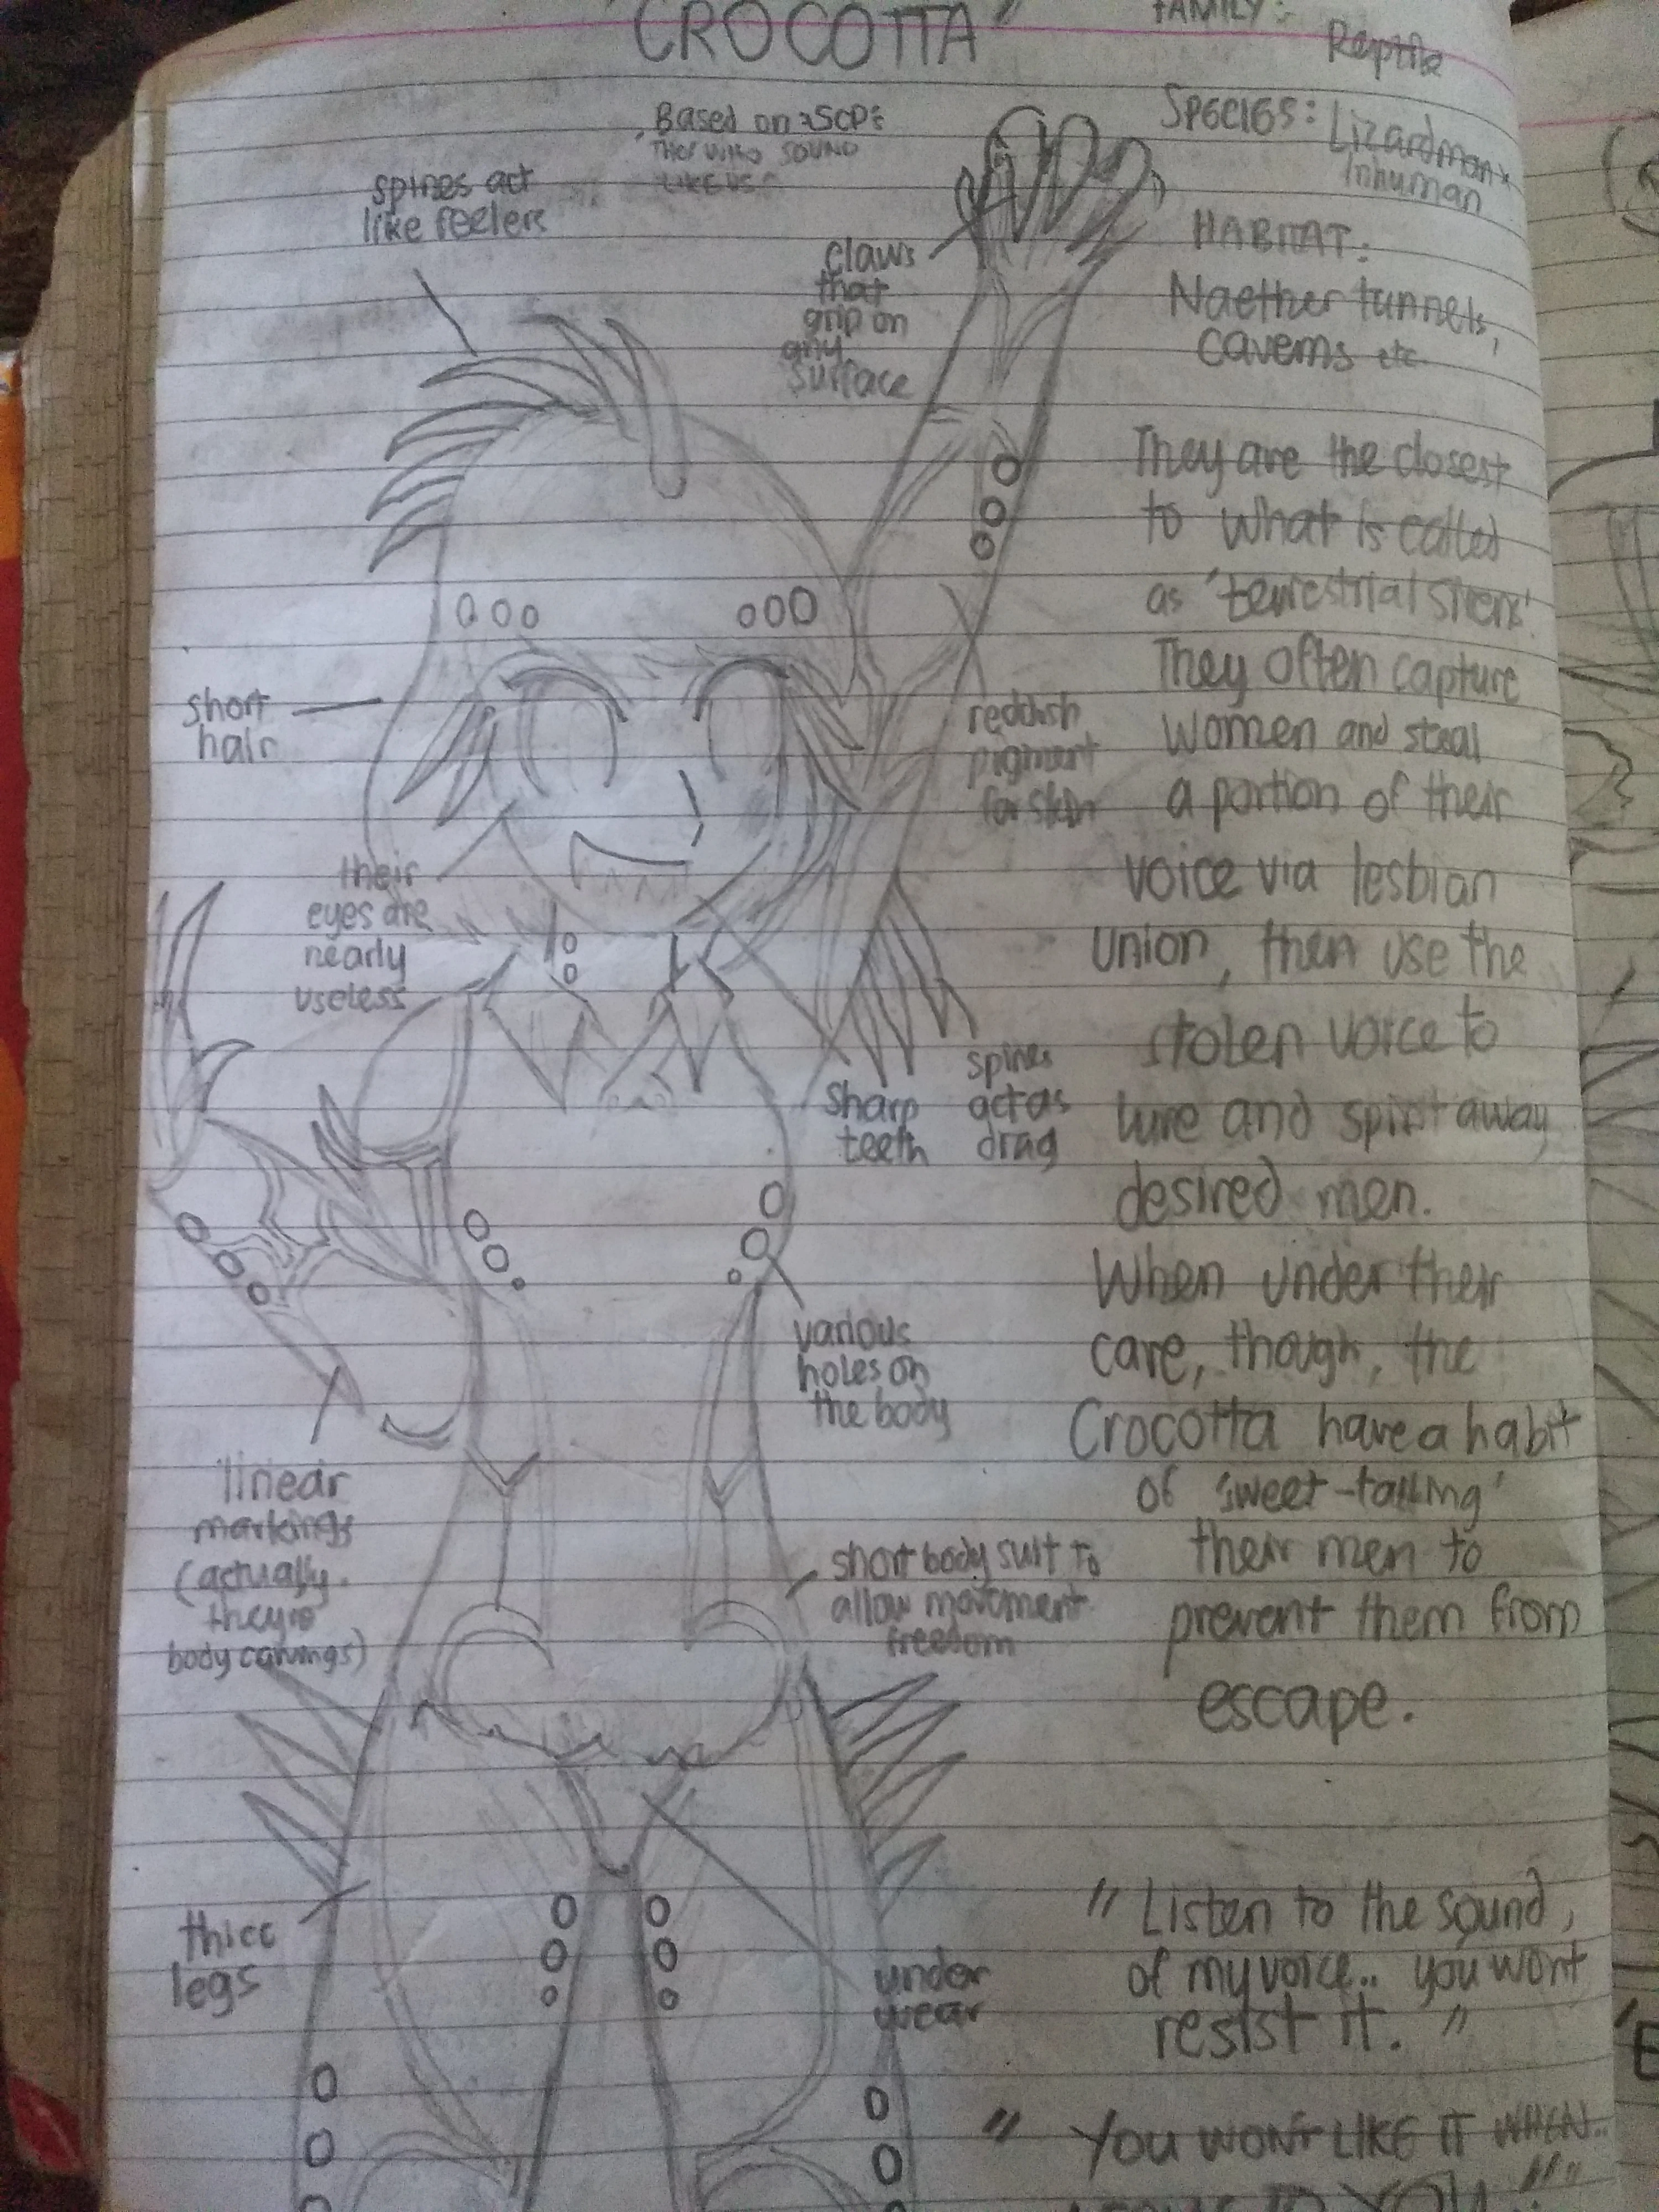 "CROCOTTA"
FAMILY:
Reptile
SPECIES: Lizardman x
Inhuman
Based on SCP:
THOSE WHO SOUND
LIKE US
HABITAT:
Naether tunnels,
caverns etc.
spines act
like feelers
claws
that
grip on
any
surface
short
hair
reddish
pigment
for skin
their
eyes are
nearly
useless
sharp
teeth
spines
act as
drag
various
holes on
the body
linear
markings
(actually
they're
body carvings)
short body suit to
allow movement
freedom
thicc
legs
under
wear
They are the closest
to what is called
as 'terrestrial sirens'.
They often capture
women and steal
a portion of their
voice via lesbian
union, then use the
stolen voice to
lure and spirit away
desired men.
When under their
care, though, the
Crocotta have a habit
of 'sweet-talking'
their men to
prevent them from
escape.
"Listen to the sound,
of my voice.. you won't
resist it."
"YOU WON'T LIKE IT WHEN..
TO YOU."